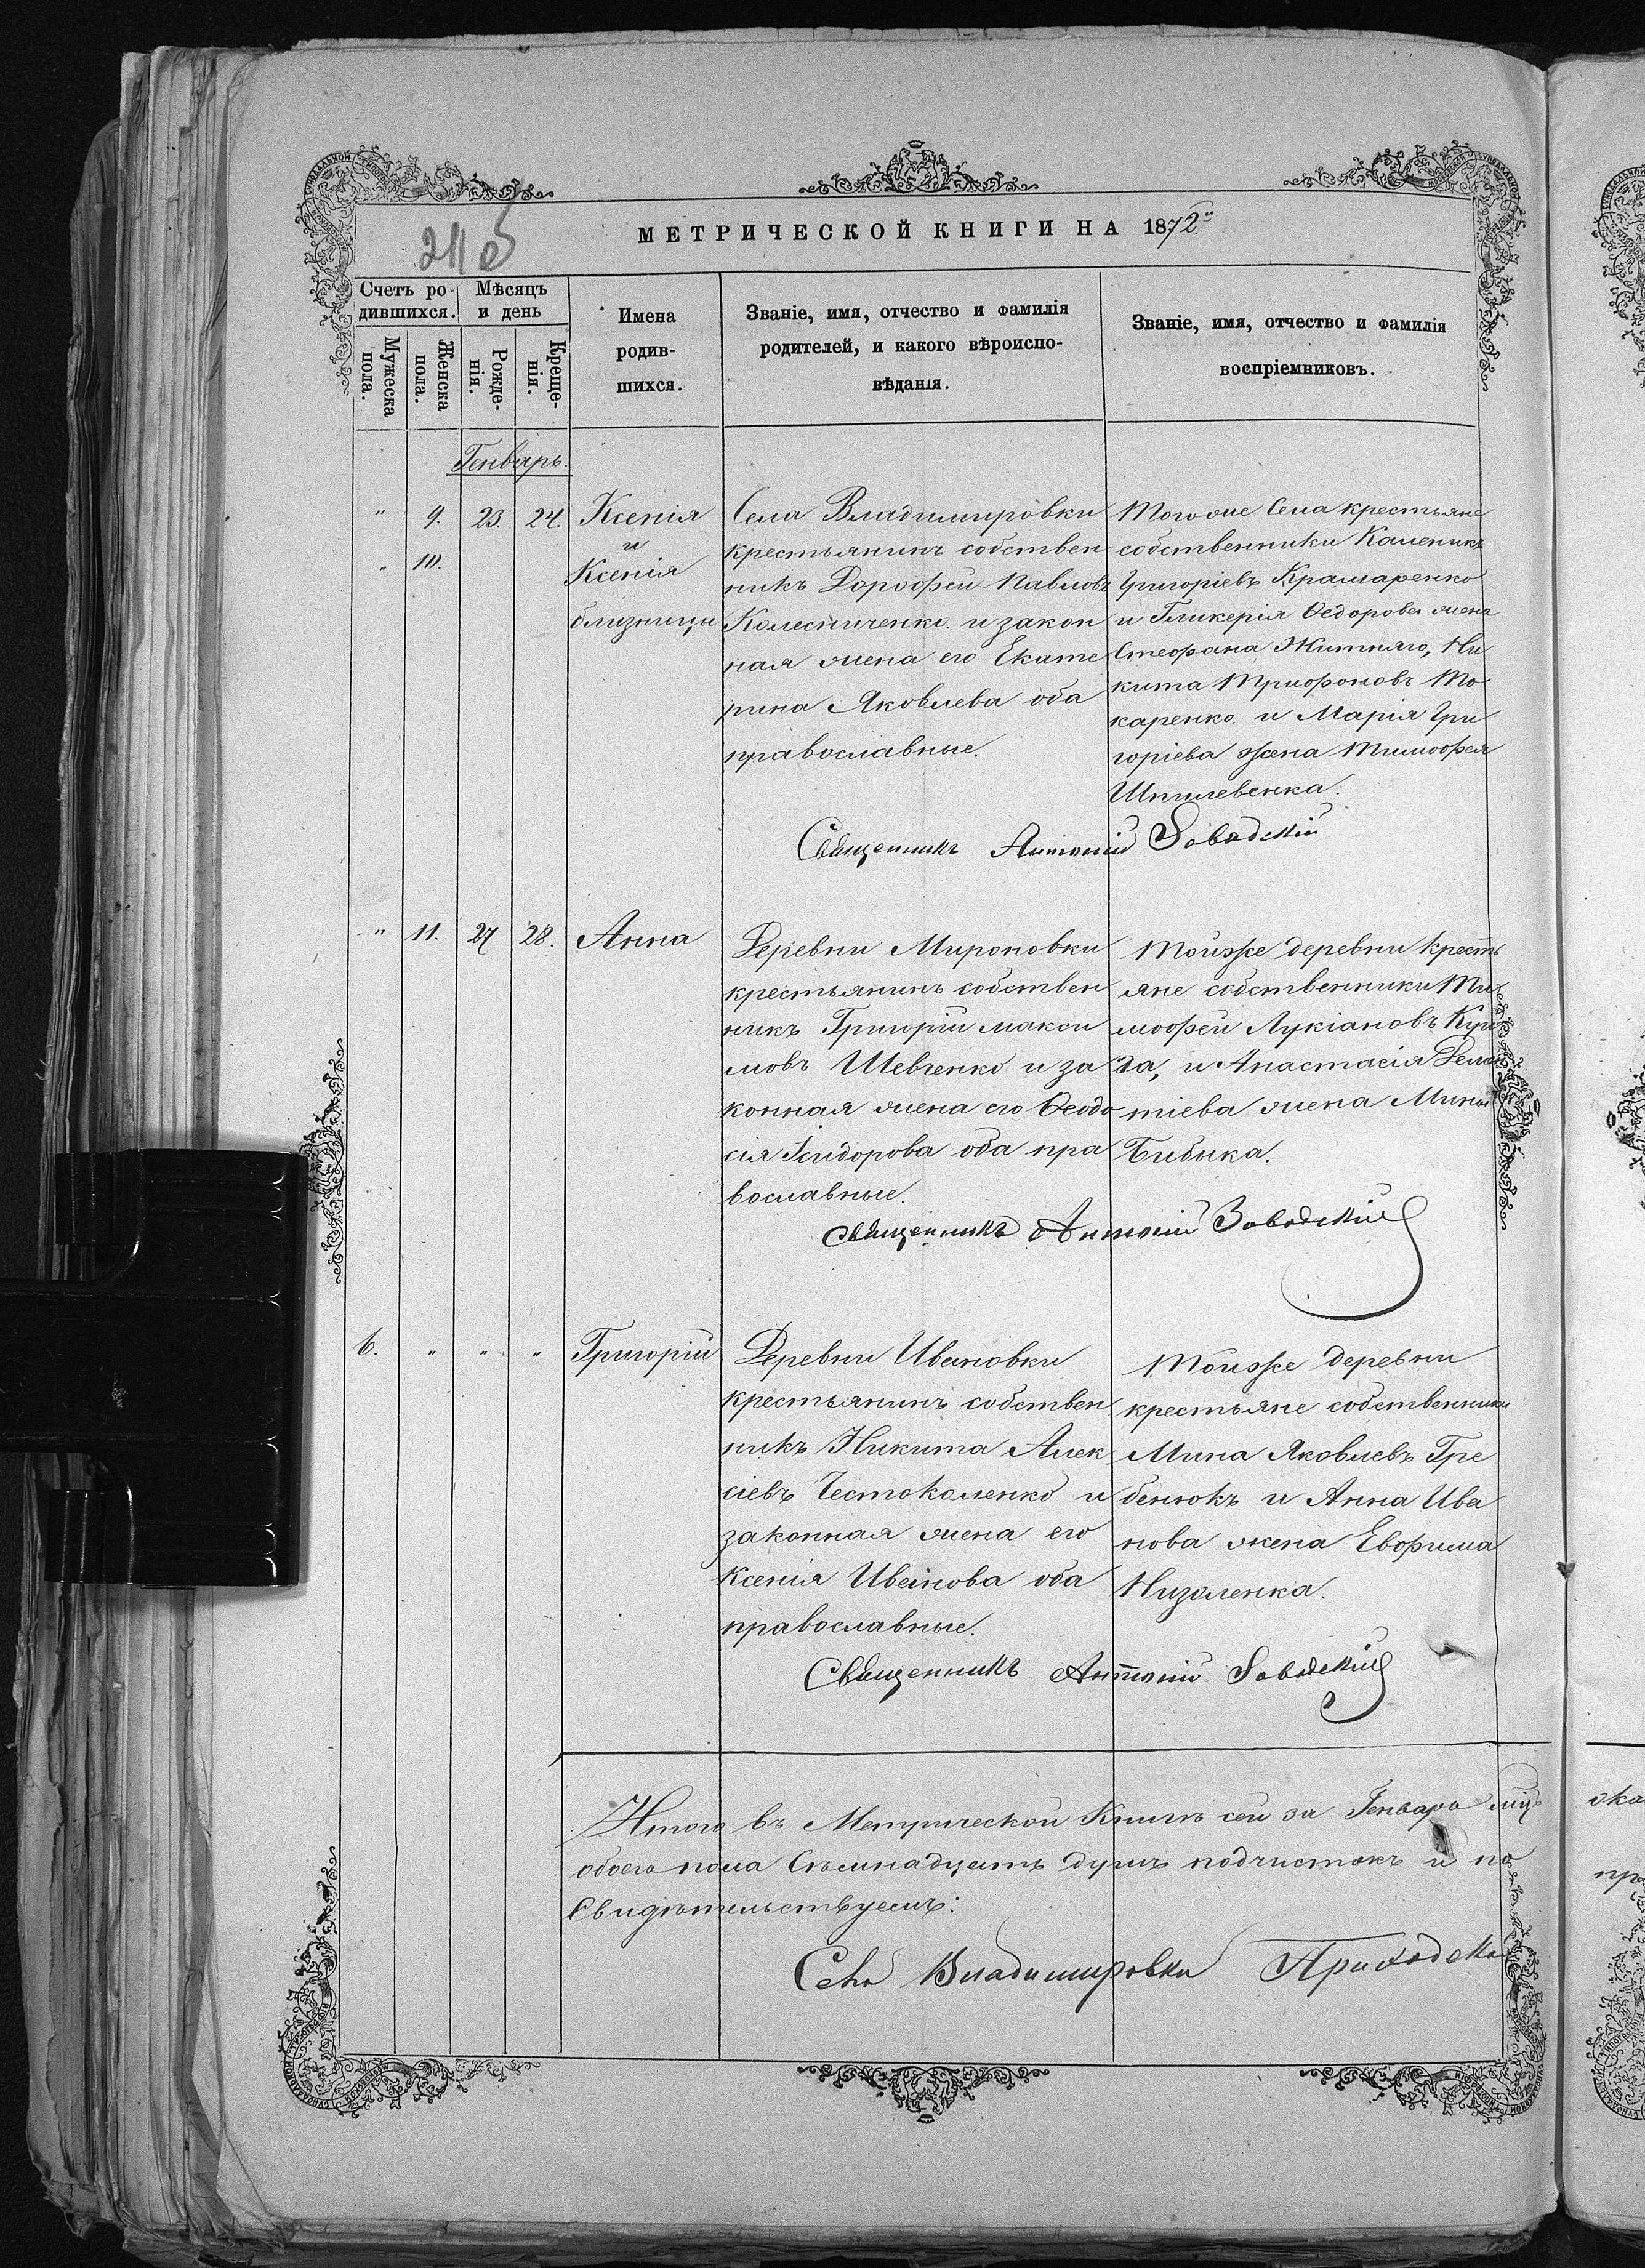 211 об
МЕТРИЧЕСКОЙ КНИГИ НА 1872й
Счетъ ро-
дившихся.
Мѣсяцъ
и день
Мужеска
пола.
Женска
пола.
Рожде-
нія.
Креще-
нія.
Имена
родив-
шихся.
Званіе, имя, отчество и фамилія
родителей, и какого вѣроиспо-
вѣданія.
Званіе, имя, отчество и фамилія
воспріемниковъ.
Генварь.
" 9. 23. 24.
" 10.
Ксенія
и
Ксенія
близницы
Села Владимировки
крестьянинъ собствен
никъ Дорофей Павловъ
Колесниченко. и закон
ная жена его Екате
рина Яковлева оба
православные.
Тогоже Села крестьяне
собственники Каленикъ
Григоріевъ Крамаренко
и Гликерія Ѳедорова жена
Стефана Житняго, Ни
кита Трифоновъ То
каренко. и Марія Гри
горіева жена Тимофея
Шпилевенка.
Священникъ Антоній Завадскій
" 11. 27 28.
Анна
Деревни Мироновки
крестьянинъ собствен
никъ Григорій Макси
мовъ Шевченко и за
конная жена его Ѳеодо
сія Ісидорова оба пра
вославные.
Тойже деревни кресть
яне собственники Ти
мофей Лукіановъ
за, и Анастасія
тіева жена Мины
Бибыка.
Священникъ Антоній Завадскій
6. " " "
Григорій
Деревни Ивановки
крестьянинъ собствен
никъ Никита Алек
сіевъ Честокаленко и
законная жена его
Ксенія Иванова оба
православные.
Тойже деревни
крестьяне собственники
Мина Яковлевъ Гре
бенюкъ и Анна Ива
нова жена Евфима
Низаленка.
Священникъ Антоній Завадскій
Итого въ Метрической Книгѣ сей за Генварь мцъ
обоего пола Семнадцать душъ подчистокъ и по
Свидѣтельствуемъ:
Села Владимировки Приходска